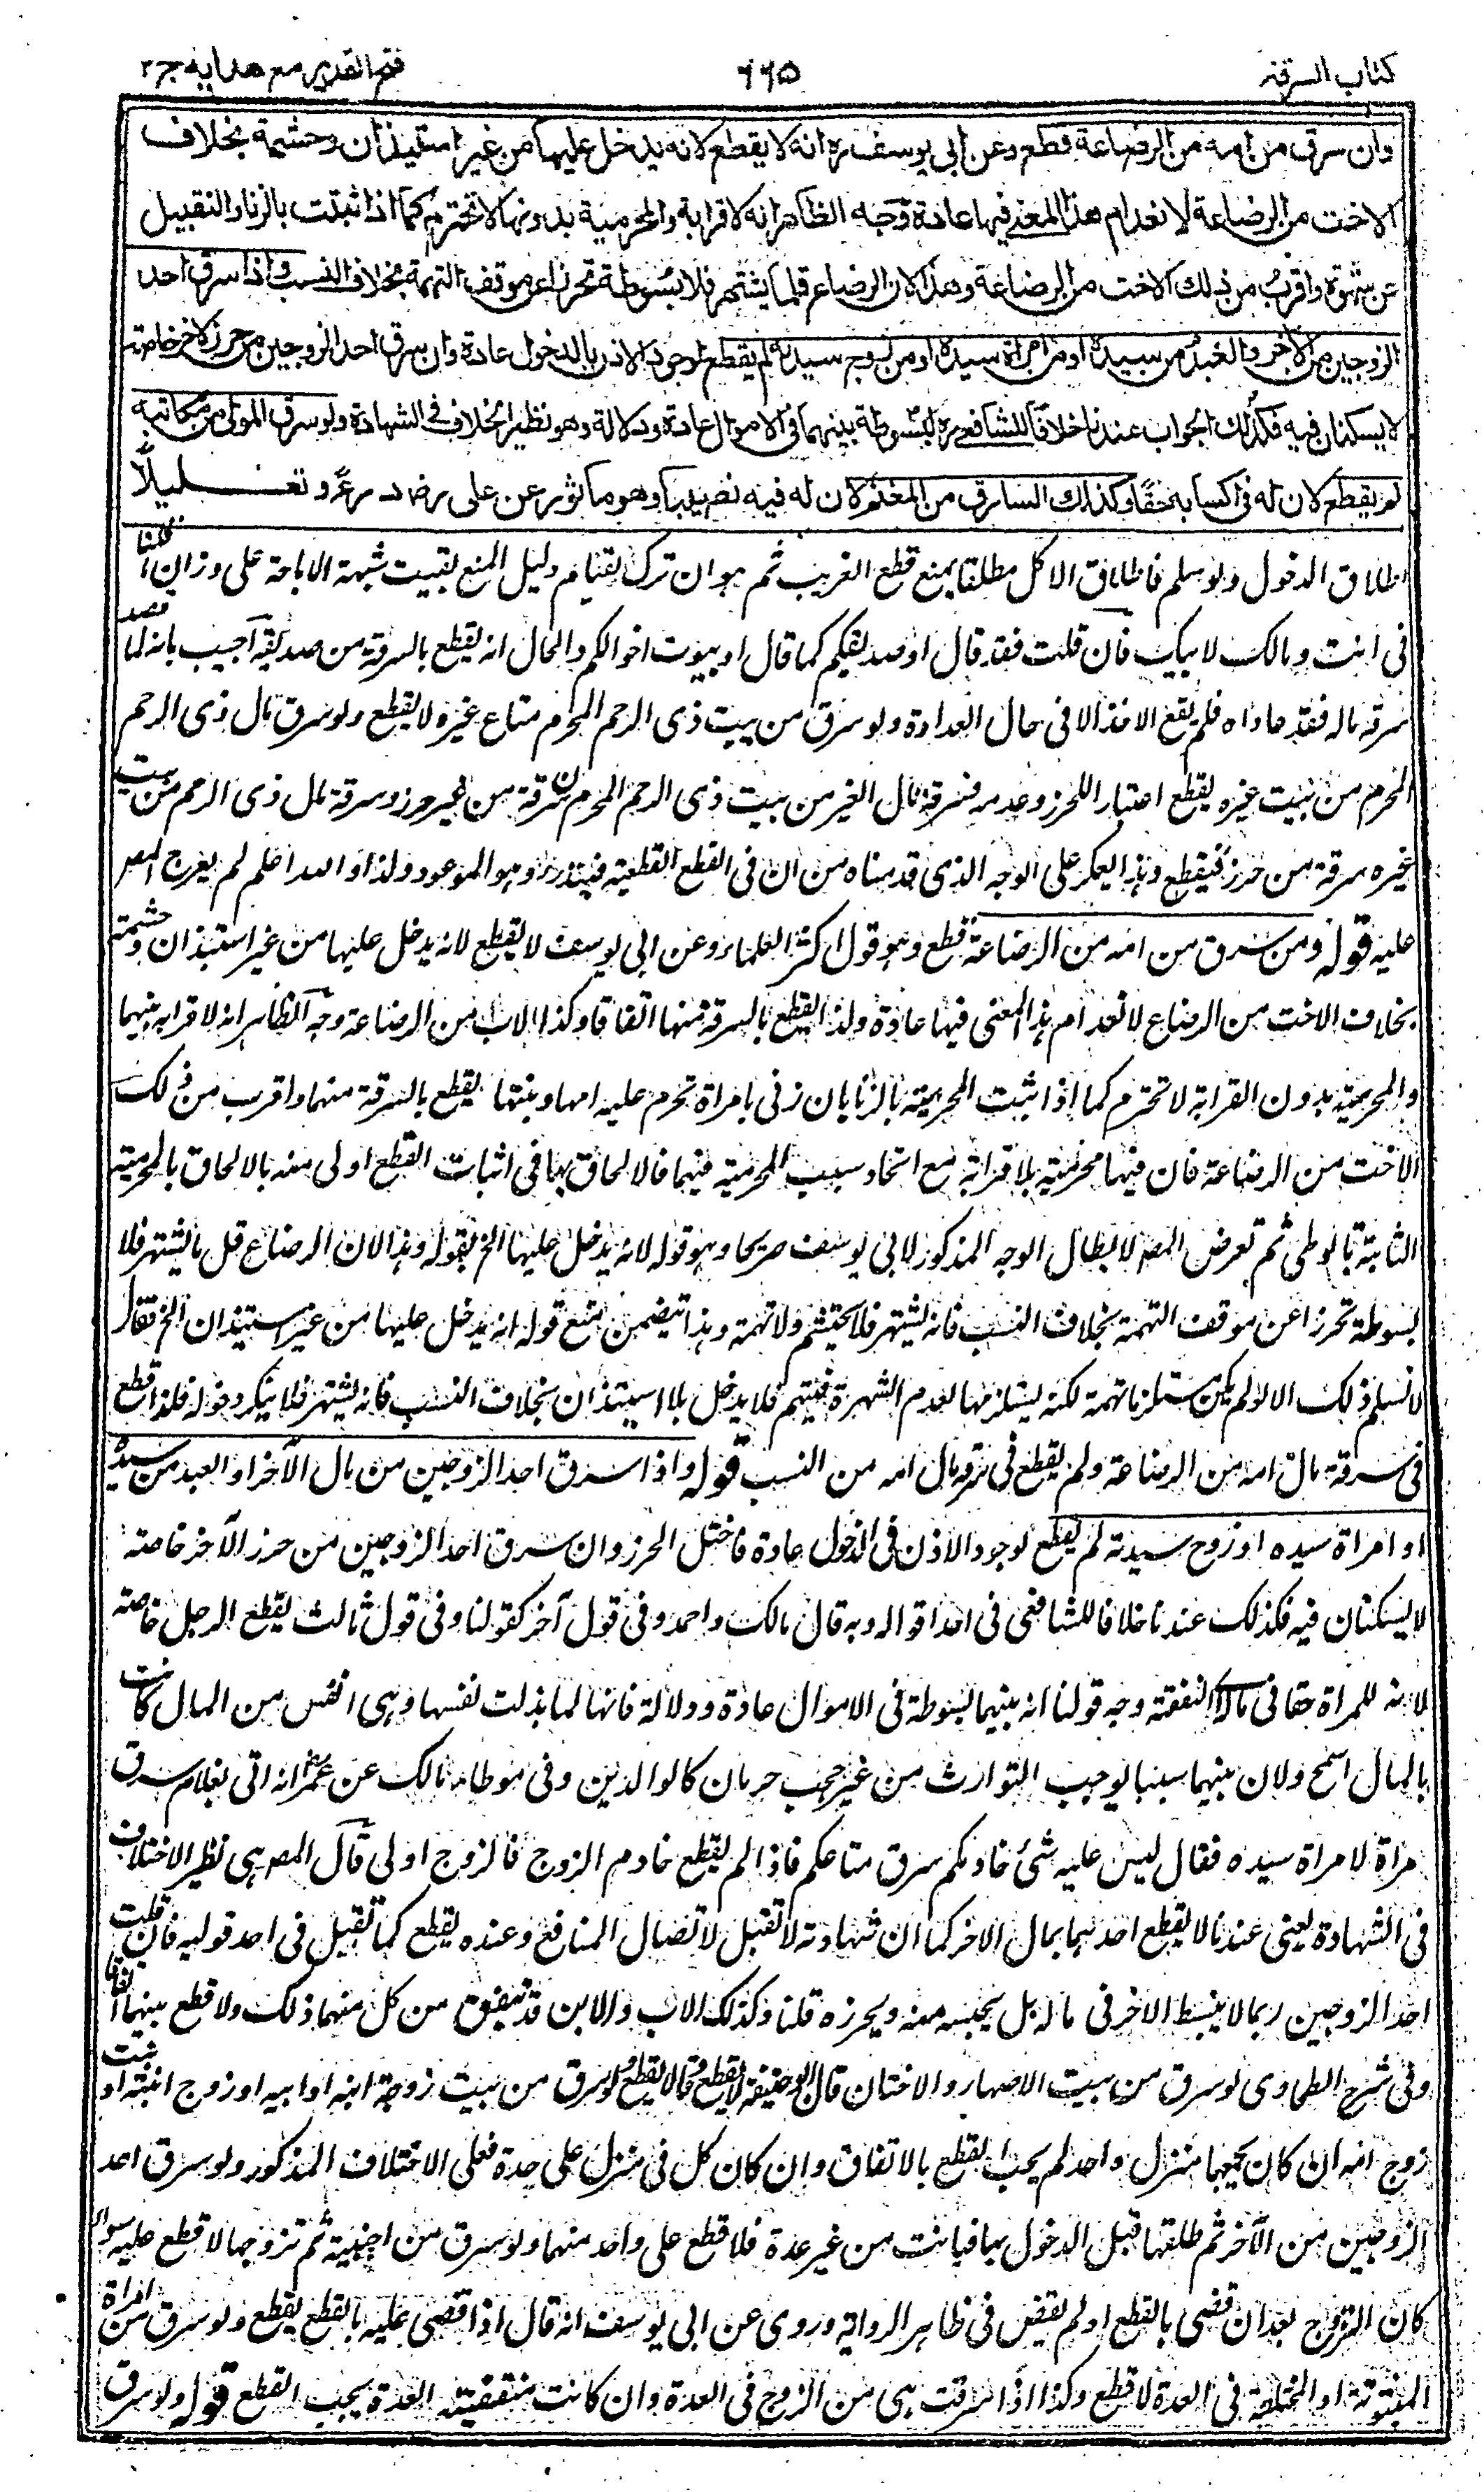 كتاب السرقة ٦٦٥ فتح القدير مع هدايه ج٢
وان سرق من امه من الرضاعة قطع وعن ابى يوسف ره انه لا يقطع لانه يدخل عليها من غير استيذان وحشمة بخلاف
الاخت من الرضاعة لانعدام هذا المعنى فيها عادة وجه الظاهر انه لا قرابة والمحرمية بدونها لا تحترم كما اذا ثبتت بالزنا والتقبيل
عن شهوة واقرب من ذلك الاخت من الرضاعة وهذا لان الرضاع قلما يشتهر فلا بسوطة تحرزا عن موقف التهمة بخلاف النسب واذا سرق احد
الزوجين من الآخر والعبد من سيده او من امرأة سيده او من زوج سيدته لم يقطع لوجود الاذن بالدخول عادة وان سرق احد الزوجين من حرز لآخر خاصة
لا يسكنان فيه فكذلك الجواب عندنا خلافا للشافعى ره لبسوطة بينهما فى الاموال عادة ودلالة وهو نظير الخلاف فى الشهادة ولو سرق المولى من مكاتبه
لم يقطع لان له فى اكسابه حقا وكذلك السارق من المغنم لان له فيه نصيبا وهو مأثور عن على رض درءً وتعليلاً
اطلاق الدخول ولو سلم فاطلاق الاكل مطلقا يمنع قطع القريب ثم هو ان ترك لقيام دليل المنع بقيت شبهة الاباحة على وزان ما قلنا
فى انت ومالك لابيك فان قلت فقد قال او صديقكم كما قال او بيوت اخوالكم والحال انه يقطع بالسرقة من صديقه اجيب بانه لما قصد
سرقة ماله فقد عاداه فلم يقع الاخذ الا فى حال العداوة ولو سرق من بيت ذى الرحم المحرم متاع غيره لا يقطع ولو سرق مال ذى الرحم
المحرم من بيت غيره يقطع اعتبارا للحرز وعدمه فسرقة مال الغير من بيت ذى الرحم المحرم سرقة من غير حرز وسرقة مال ذى الرحم من بيت
غيره سرقة من حرز فيقطع وهذا يعكر على الوجه الذى قدمناه من ان فى القطع القطيعة فيندرء وهو الموعود ولذا والله اعلم لم يعرج المصر
عليه قوله ومن سرق من امه من الرضاعة قطع وهو قول اكثر العلماء وعن ابى يوسف لا يقطع لانه يدخل عليها من غير استيذان وحشمة
بخلاف الاخت من الرضاع لانعدام هذا المعنى فيها عادة ولذا يقطع بالسرقة منها اتفاقا وكذا الاب من الرضاعة وجه الظاهر انه لا قرابة بينهما
والمحرمية بدون القرابة لا تحترم كما اذا ثبت المحرمية بالزنا بان زنى بامرأة تحرم عليه امها وبنتها يقطع بالسرقة منهما واقرب من ذلك
الاخت من الرضاعة فان فيها محرمية بلا قرابة مع اتحاد سبب المحرمية فيهما فالالحاق بها فى اثبات القطع اولى منه بالالحاق بالمحرمية
الثابتة بالوطى ثم تعرض المصر لابطال الوجه المذكور لابى يوسف صريحا وهو قوله لانه يدخل عليها الخ بقوله وهذا لان الرضاع قل ما يشتهر فلا
بسوطة تحرزا عن موقف التهمة بخلاف النسب فانه يشتهر فلا يحتشم ولا تهمة وهذا يتضمن منع قوله انه يدخل عليها من غير استيذان الخ فقال
لا نسلم ذلك الا لو لم يكن مستلزما تهمة لكنه يستلزمها لعدم الشهرة فيتهم فلا يدخل بلا استيذان بخلاف النسب فانه يشتهر فلا ينكر دخوله فلذا قطع
فى سرقة مال امه من الرضاعة ولم يقطع فى سرقة مال امه من النسب قوله واذا سرق احد الزوجين من مال الآخر او العبد من سيده
او امرأة سيده او زوج سيدته لم يقطع لوجود الاذن فى الدخول عادة فاختل الحرز وان سرق احد الزوجين من حرز الآخر خاصة
لا يسكنان فيه فكذلك عندنا خلافا للشافعى فى احد اقواله وبه قال مالك واحمد وفى قول آخر كقولنا وفى قول ثالث يقطع الرجل خاصة
لان للمرأة حقا فى ماله النفقة وجه قولنا انه بينهما بسوطة فى الاموال عادة ودلالة فانها لما بذلت نفسها وهى انفس من المال كانت
بالمال اسمح ولان بينهما سببا يوجب التوارث من غير حجب حرمان كالوالدين وفى موطاء مالك عن عمر انه اتى بغلام سرق
مرآة لامرأة سيده فقال ليس عليه شئ خادمكم سرق متاعكم فاذا لم يقطع خادم الزوج فالزوج اولى قال المصر هى نظير الاختلاف
فى الشهادة يعنى عندنا لا يقطع احدهما بمال الاخر كما ان شهادته لا تقبل لاتصال المنافع وعنده يقطع كما تقبل فى احد قوليه فان قلت
احد الزوجين ربما لا ينبسط الاخر فى ماله بل يحبسه منه ويحرزه قلنا وكذلك الاب والابن قد يتفق من كل منهما ذلك ولا قطع بينهما اتفاقا
وفى شرح الطحاوى لو سرق من بيت الاصهار والاختان قال ابو حنيفة لا يقطع وقالا يقطع ولو سرق من بيت زوجة ابنه او ابيه او زوج ابنته او بيت
زوج امه ان كان يجمعهما منزل واحد لم يجب القطع بالاتفاق وان كان كل فى منزل على حدة فعلى الاختلاف المذكور ولو سرق احد
الزوجين من الآخر ثم طلقها قبل الدخول بها فبانت من غير عدة فلا قطع على واحد منهما ولو سرق من اجنبية ثم تزوجها لا قطع عليه سواء
كان التزوج بعد ان قضى بالقطع او لم يقض فى ظاهر الرواية وروى عن ابى يوسف انه قال اذا قضى عليه بالقطع يقطع ولو سرق من امرأة
المبتوتة او المختلعة فى العدة لا قطع وكذا اذا سرقت هى من الزوج فى العدة وان كانت منقضية العدة يجب القطع قوله ولو سرق